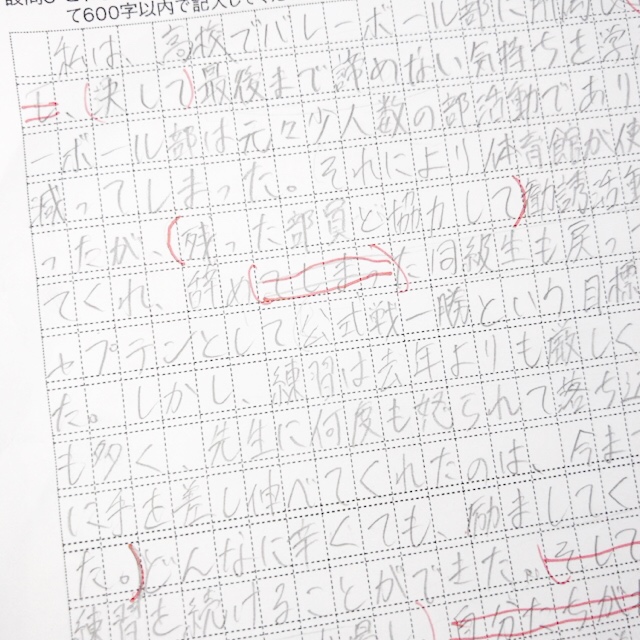 て600字以内で記入してくだ
私は、高校でバレーボール部に所属し
士、(決して)最後まで諦めない気持ちを
ーボール部は元々少人数の部活動であり
減ってしまった。それにより体育館が使
ったが、(残った部員と協力して)勧誘活動
てくれ、辞めてしまった同級生も戻って
ャプテンとして公式戦一勝という目標
た。しかし、練習は去年よりも厳しく
も多く、先生に何度も怒られて落ち込
に手を差し伸べてくれたのは、今ま
た。)どんなに辛くても、励ましてく
練習を続けることができた。そして
自分たちが